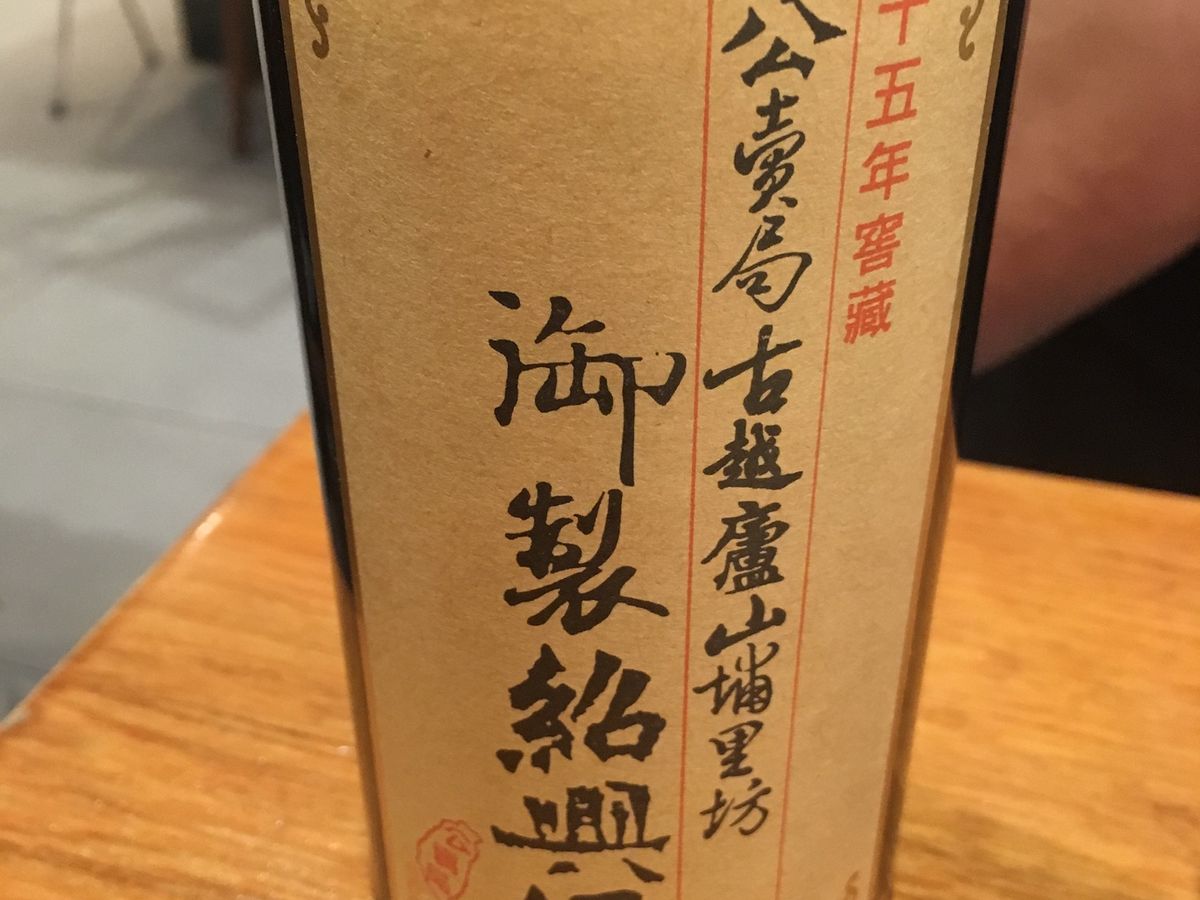 十五年窖藏
公賣局古越廬山埔里坊
御製紹興